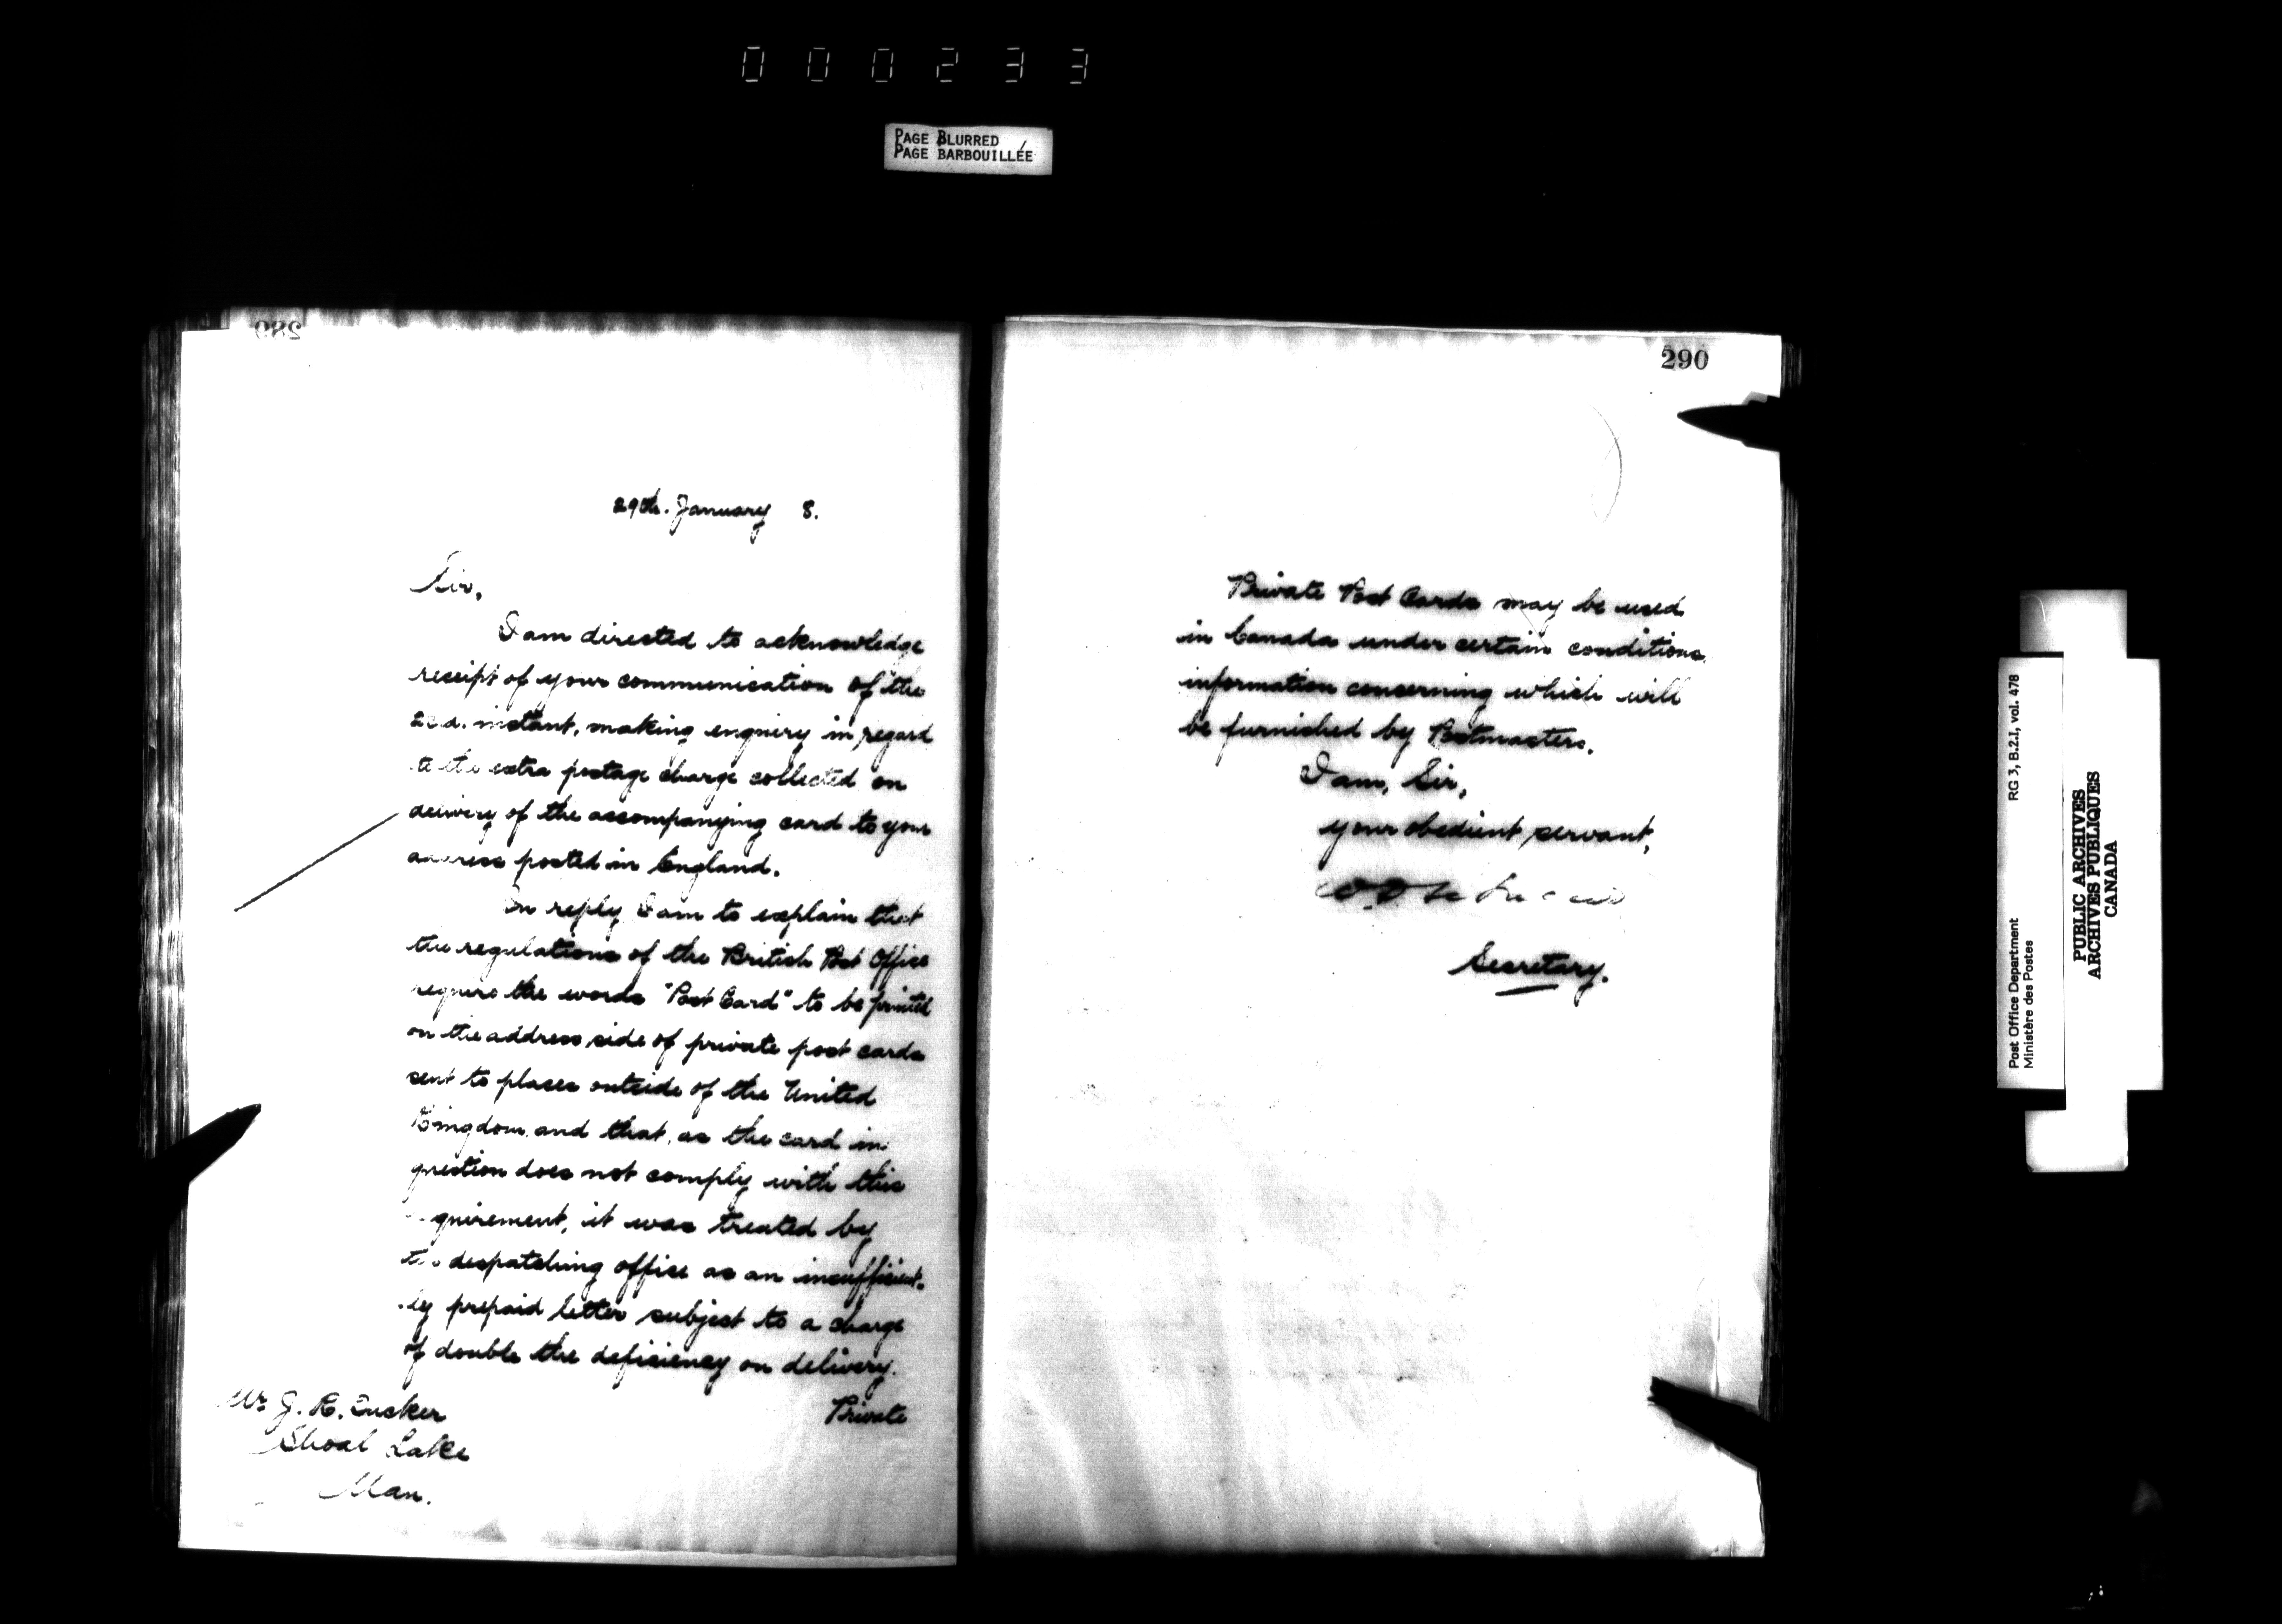 0 0 0 2 3 3
PAGE BLURRED
PAGE BARBOUILLÉE
289
29th. January 8.
Sir,
I am directed to acknowledge
receipt of your communication of the
instant, making enquiry in regard
to the extra postage charge collected on
delivery of the accompanying card to your
address posted in England.
In reply I am to explain that
the regulations of the British Post Office
require the words "Post Card" to be printed
on the address side of private post cards
sent to places outside of the United
Kingdom, and that, as the card in
question does not comply with this
quirement, it was treated by
the despatching office as an insufficient-
-ly prepaid letter subject to a charge
of double the deficiency on delivery.
Private
Mr J. R. Tucker
Shoal Lake
Man.
290
Private Post Cards may be used
in Canada under certain conditions,
information concerning which will
be furnished by Postmasters.
I am, Sir,
your obedient servant,
Secretary.
Post Office Department RG 3, B.2.I, vol. 478
Ministère des Postes
PUBLIC ARCHIVES
ARCHIVES PUBLIQUES
CANADA